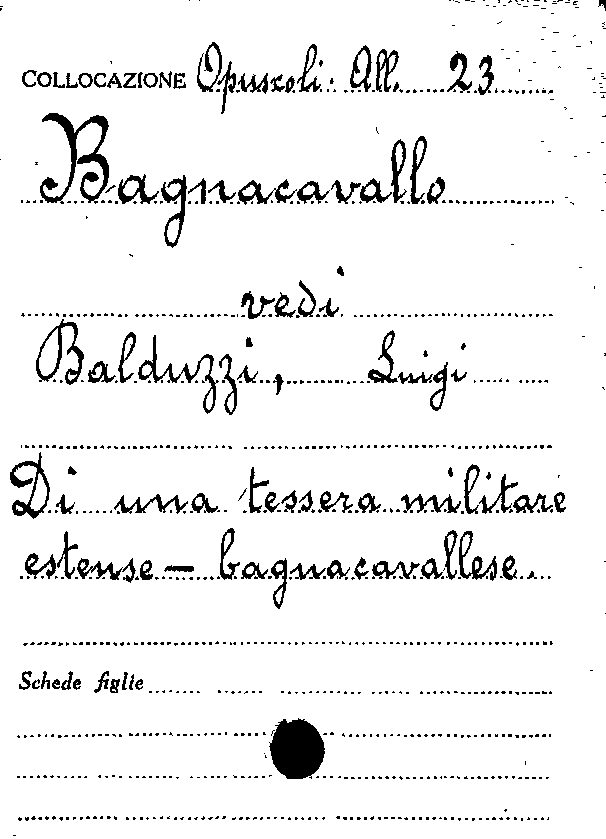 COLLOCAZIONE Opuscoli. All. 23
Bagnacavallo
vedi
Balduzzi, Luigi
Di una tessera militare
estense - bagnacavallese.
Schede figlie